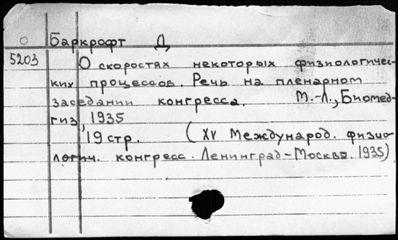 Баркрофт Д
5203 О скоростях некоторых физиологичес-
ких процессов. Речь на пленарном
заседании конгресса. М.-Л., Биомед-
гиз, 1935
19 стр. (XV Международ. физио-
логич. конгресс. Ленинград-Москва. 1935)